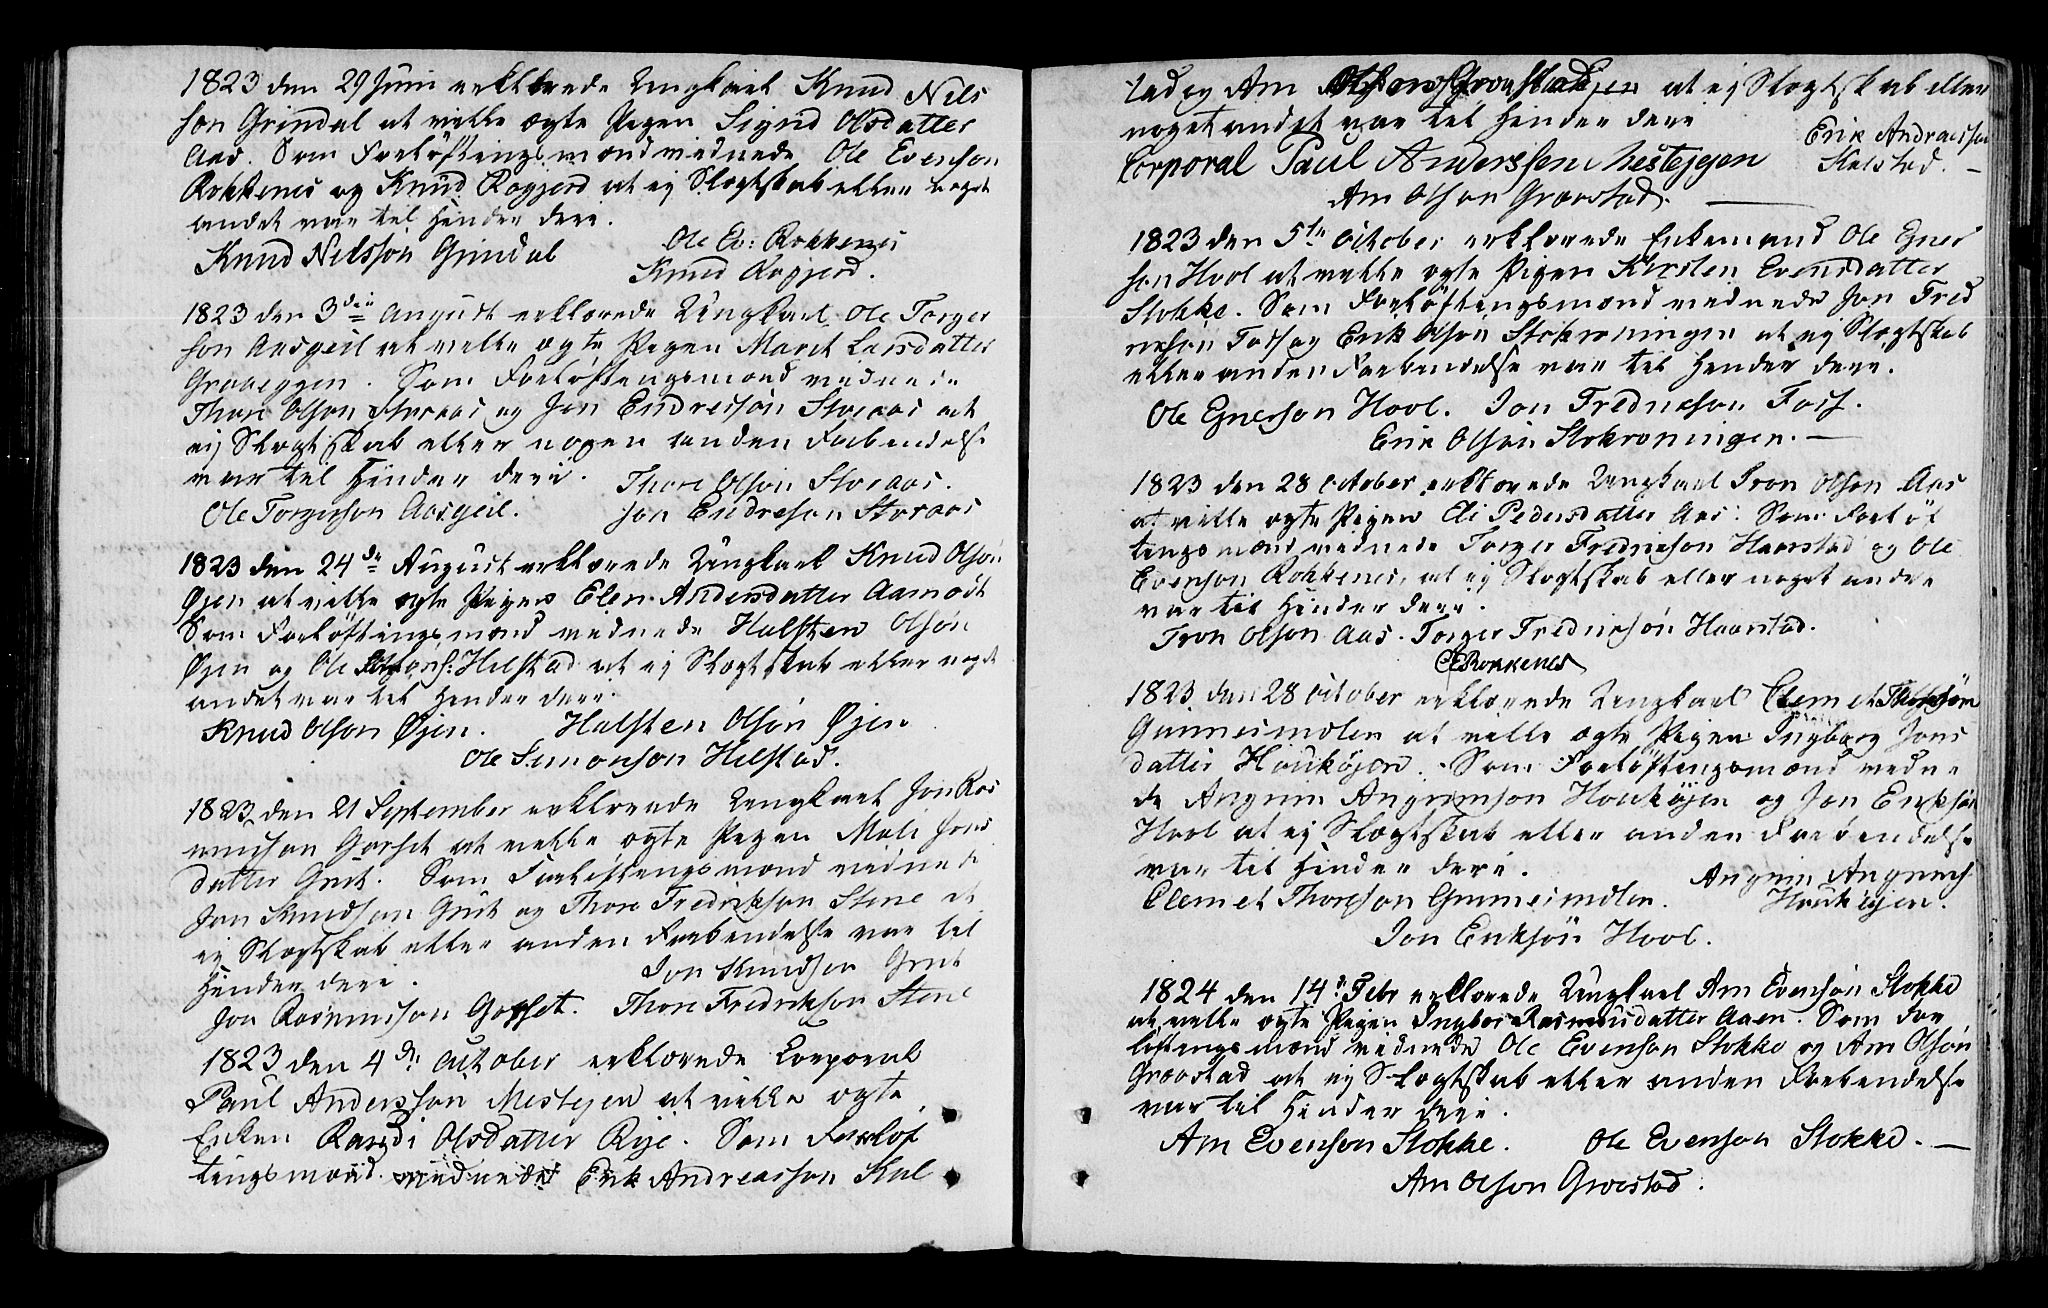 1823 den 29 Juni erklærede Ungkarl Knud Nils
son Grindal at ville ægte Pigen Sigrid Olsdatter
Aas. Som Forløftingsmænd vidnede Ole Evenson
Rokkenes og Knud Rogjerd at ej Slægtskab eller noget
andet var til Hinder deri.
Knud Nilsson Grindal
Ole Ev: Rokkenes
Knud Rogjerd.
1823 den 3die August erklærede Ungkarl Ole Torger
son Aasgeil at ville ægte Pigen Marit Larsdatter
Graaeggen. Som Forløftingsmænd vidnede
Thore Olson Storaas og Jon Endresson Storaas at
ej Slægtskab eller nogen anden Forbindelse
var til Hinder deri.
Thore Olson Storaas.
Ole Torgerson Aasgeil.
Jon Endreson Storaas
1823 den 24de August erklærede Ungkarl Knud Olson
Øjen at ville ægte Pigen Elen Andersdatter Aamodt
Som Forløftingsmænd vidnede Halsten Olsøn
Øjen og Ole Simons: Helstad at ej Slægtskab eller noget
andet var til Hinder deri.
Knud Olson Øjen.
Halsten Olsøn Øjen
Ole Simonson Helstad.
1823 den 21 September erklærede Ungkarl Jon Ras
musson Gorset at ville ægte Pigen Mali Jons
datter Grut. Som Forløftingsmænd vidnede
Jon Knudson Grut og Thore Fredrikson Stene at
ej Slægtskab eller anden Forbindelse var til
Hinder deri.
Jon Knudson Grut
Jon Rasmusson Gorset. Thore Fredrikson Stene
1823 den 4de October erklærede Corporal
Paul Andersson Mestejen at ville ægte
Enken Randi Olsdatter Rije. Som Forløf
tingsmænd vidnede Erik Andreasson Kal
stad og Arn at ej Slægtskab eller
noget andet var til Hinder deri
Erik Andreasson
Corporal Paul Anderssen Mestejgen
Kalstad.
Arn Olson Gravstad.
1823 den 5te October erklærede Enkemand Ole Gner
son Hool at ville ægte Pigen Kirsten Evensdatter
Stokke. Som Forløftingsmænd vidnede Jon Fred
rikson Foss og Erik Olson Stokroningen at ej Slægtskab
eller anden Forbindelse var til Hinder deri.
Ole Gnerson Hool. Jon Fredrikson Foss.
Erik Olson Stokroningen.
1823 den 28 October erklærede Ungkarl Tron Olson Aas
at ville ægte Pigen Eli Pedersdatter Aas. Som Forløf
tingsmænd vidnede Torger Fredrikson Haarstad og Ole
Evenson Rokkenes, at ej Slægtskab eller noget andet
var til Hinder deri.
Tron Olson Aas. Torger Fredrikson Haarstad.
OE Rokkenes
1823 den 28 October erklærede Ungkarl Clemet Thoreson
Gunnesmolen at ville ægte Pigen Ingborg Jons
datter Haukøjen. Som Forløftingsmænd vidne
de Angrim Angrimson Haukøjen og Jon Eriksøn
Hool at ej Slægtskab eller anden Forbindelse
var til Hinder deri.
Angrim Angrims
Clemet Thoreson Gunnesmolen.
Haukøjen.
Jon Eriksøn Hool.
1824 den 14d Febr erklærede Ungkarl Arn Evenson Stokke
at ville ægte Pigen Ingbor Rasmusdatter Aaen. Som For
løftingsmænd vidnede Ole Evenson Stokke og Arn Olsøn
Gravstad at ej Slægtskab eller anden Forbindelse
var til Hinder deri.
Arn Evenson Stokke. Ole Evenson Stokke.
Arn Olson Gravstad.